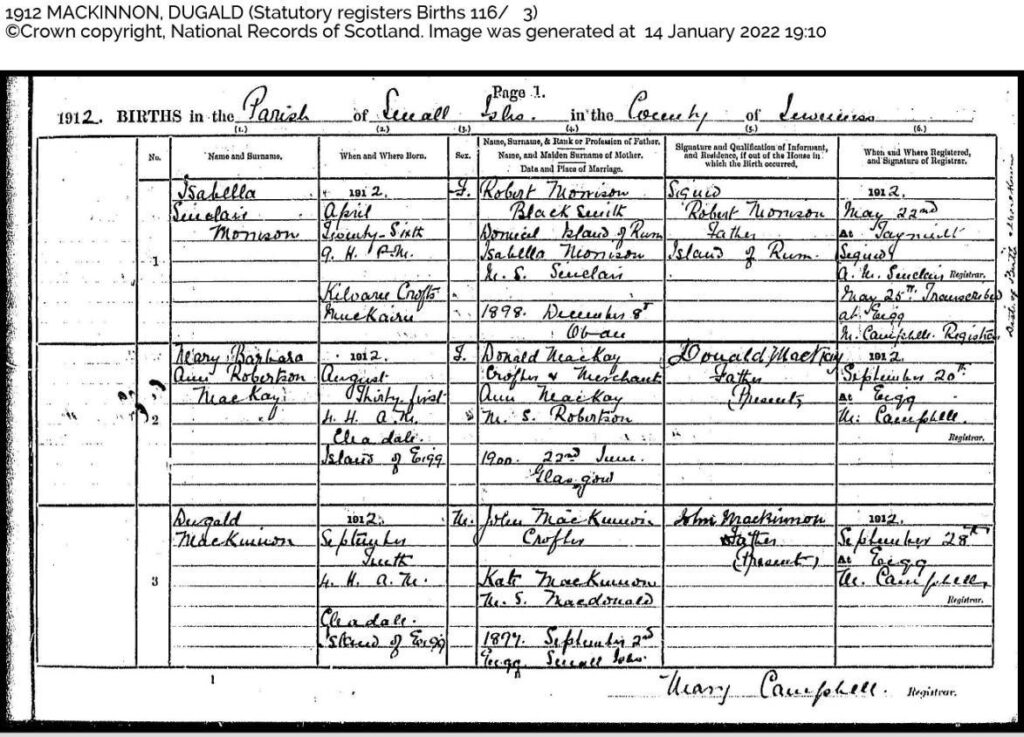 1912 MACKINNON, DUGALD (Statutory registers Births 116/ 3)
©Crown copyright, National Records of Scotland. Image was generated at 14 January 2022 19:10
Page 1.
1912. BIRTHS in the Parish of Small Isles. in the County of Inverness
(1.) (2.) (3.) (4.) (5.) (6.)
No.
Name and Surname.
When and Where Born.
Sex.
Name, Surname, & Rank or Profession of Father.
Name, and Maiden Surname of Mother.
Date and Place of Marriage.
Signature and Qualification of Informant,
and Residence, if out of the House in
which the Birth occurred.
When and Where Registered,
and Signature of Registrar.
1
Isabella
Sinclair
Morrison
1912
April
Twenty-Sixth
9. H. P.M.
Kilvaree Crofts
Muckairn
F.
Robert Morrison
Black Smith
Domicil Island of Rum
Isabella Morrison
M. S. Sinclair
1898. December 8th
Oban
Signed
Robert Morrison
Father
Island of Rum.
1912.
May 22nd
At Taynuilt
Signed
A. M. Sinclair Registrar.
May 25th. Transcribed
at Eigg
M. Campbell. Registrar
2
Mary Barbara
Ann Robertson
MacKay
1912.
August
Thirty first
4. H. A.M.
Cleadale.
Island of Eigg
F.
Donald MacKay
Crofter & Merchant
Ann MacKay
M. S. Robertson
1900. 22nd June.
Glasgow
Donald MacKay
Father
(Present)
1912.
September 20th
At Eigg
M. Campbell.
Registrar.
3
Dugald
MacKinnon
1912.
September
Tenth
4. H. A.M.
Cleadale.
Island of Eigg
M.
John MacKinnon
Crofter
Kate MacKinnon
M. S. Macdonald
1897. September 2nd
Eigg Small Isles.
John Mackinnon
Father
(Present)
1912.
September 28th
At Eigg
M. Campbell.
Registrar.
1
Mary Campbell. Registrar.